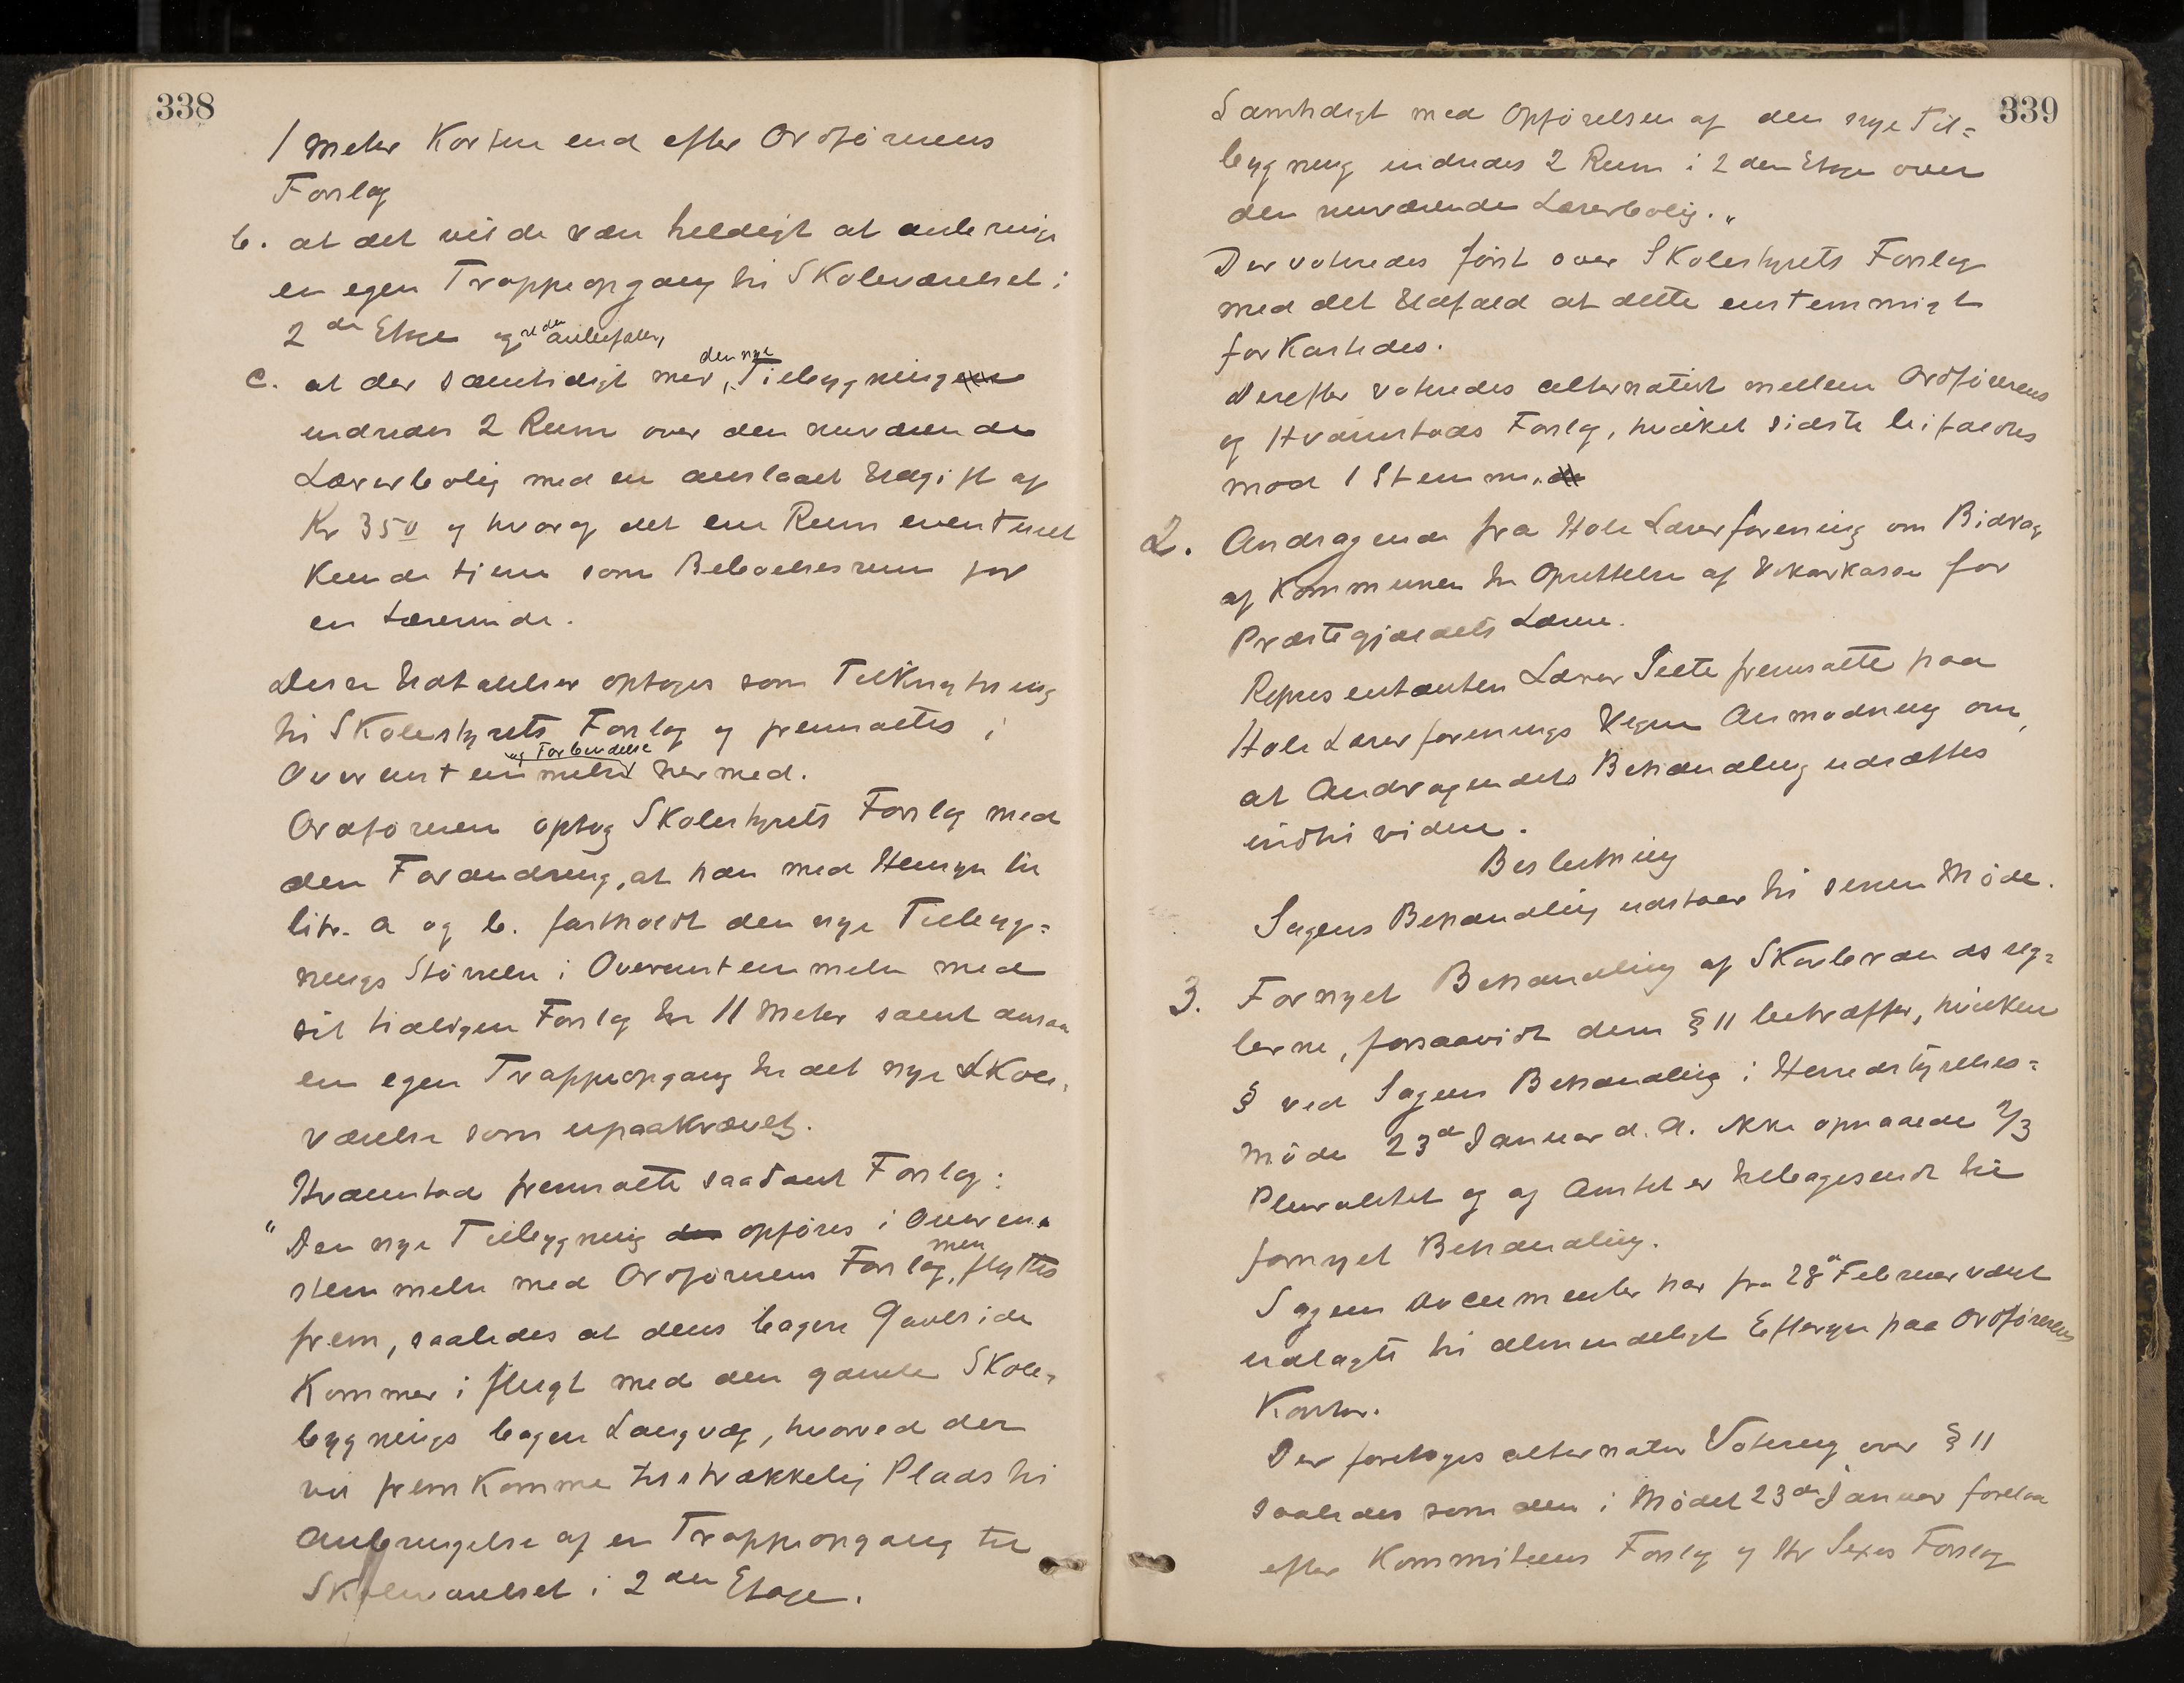 338
1 Meter Kortere end efter Ordförerens
Forslag
b. at det vilde være heldigt at anbringe
en egen Trappeopgang til Skoleværelset i
2den Etage og anbefales,
c. at der samtidigt med den nye Tilbygning
indredes 2 Rum over den nuværende
Lærerbolig med en anslaaet Udgift af
Kr 350 og hvoraf det ene Rum eventuelt
Kunde tjene som Beboelsesrum for
en Lærerinde.
Disse Udtalelser optoges som Tilknytning
til Skolestyrets Forslag og fremsattes i
Overenstemmelse og Forbindelse hermed.
Ordföreren optog Skolestyrets Forslag med
den Forandring, at han med Hensyn til
litr. a og b. fastholdt den nye Tilbyg=
nings Störrelse i Overenstemmelse med
sit tidligere Forslag til 11 Meter samt ansaa
en egen Trappeopgang til det nye Skole=
værelse som upaakrævet.
Hvamstad fremsatte saadant Forslag:
"Den nye Tilbygning opföres i Overens
stemmelse med Ordförerens Forslag, men flyttes
frem, saaledes at dens bagre Gavlside
Kommer i flugt med den gamle Skole=
bygnings bagre Langvæg, hvorved der
vil fremkomme tilstrækkelig Plads til
Anbringelse af en Trappeopgang til
Skoleværelset i 2den Etage.
339
Samtidigt med Opförelsen af den nye Til=
bygning indredes 2 Rum i 2den Etage over
den nuværende Lærerbolig."
Der voteredes först over Skolestyrets Forslag
med det Udfald at dette enstemmigt
forkastedes.
Derefter voteredes alternativt mellem Ordförerens
og Hvamstads Forslag, hvilket sidste bifaldtes
mod 1 Stemme.
2. Andragende fra Hole Lærerforening om Bidrag
af Kommunen til Oprettelse af Vikarkasse for
Præstegjældets Lærere.
Repræsentanten Lærer fremsatte paa
Hole Lærerforenings Vegne Anmodning om,
at Andragendets Behandling udsættes
indtil videre.
Beslutning
Sagens Behandling udstaar til senere Möde.
3. Fornyet Behandling af Skovbrandsreg=
lerne, forsaavidt dem § 11 betræffer, hvilken
§ ved Sagens Behandling i Herredstyrelses=
möde 23de Januar d. A. ikke opnaaede 2/3
Pluralitet og af Amtet er tilbagesendt til
fornyet Behandling.
Sagens Documenter har fra 28de Februar været
udlagte til almindeligt Eftersyn paa Ordförerens
Kontor.
Der foretoges alternativ Votering over § 11
saaledes som den i Mödet 23de Januar forelaa
efter Kommiteens Forslag og Hr Forslag